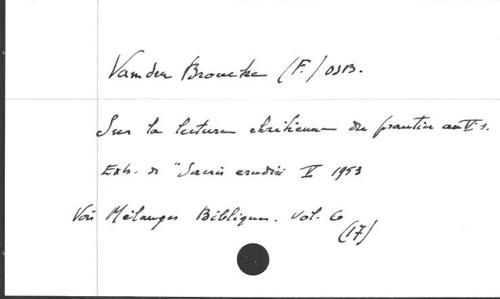 Vanden Broucke (F.) OSB.
Sur la lecture chrétienne du psautier au V s.
Extr. de "Sacris erudiri V 1953
Voir Mélanges Bibliques. vol. 6
(17)